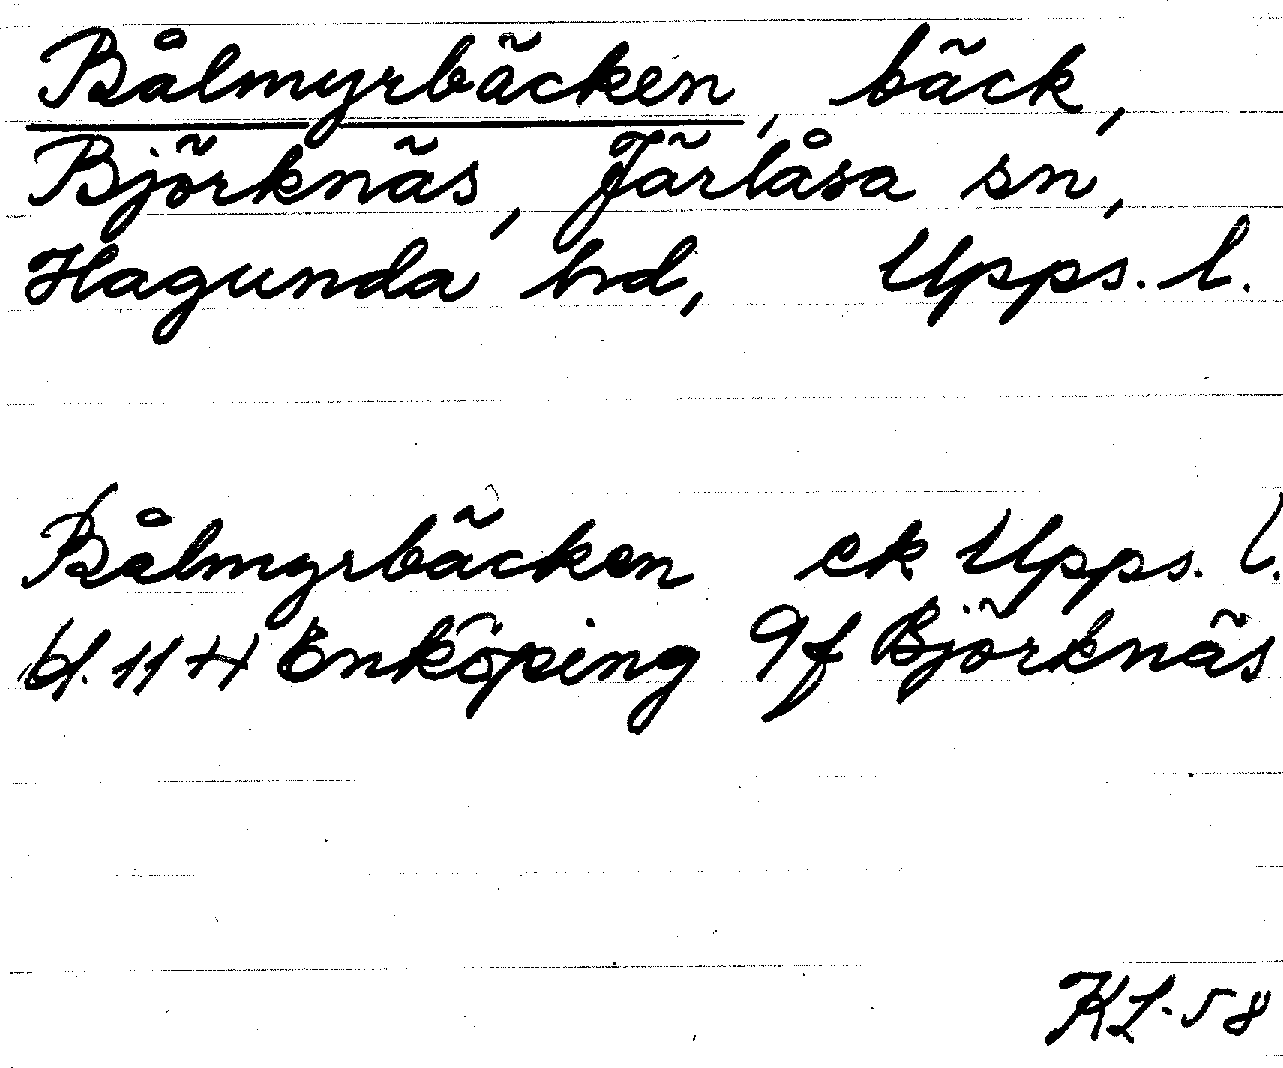 Bålmyrbäcken, bäck,
Björknäs, Järlåsa sn,
Hagunda hd, Upps. l.
Bålmyrbäcken ek Upps. l.
bl. 114 Enköping 9f Björknäs
KL-58